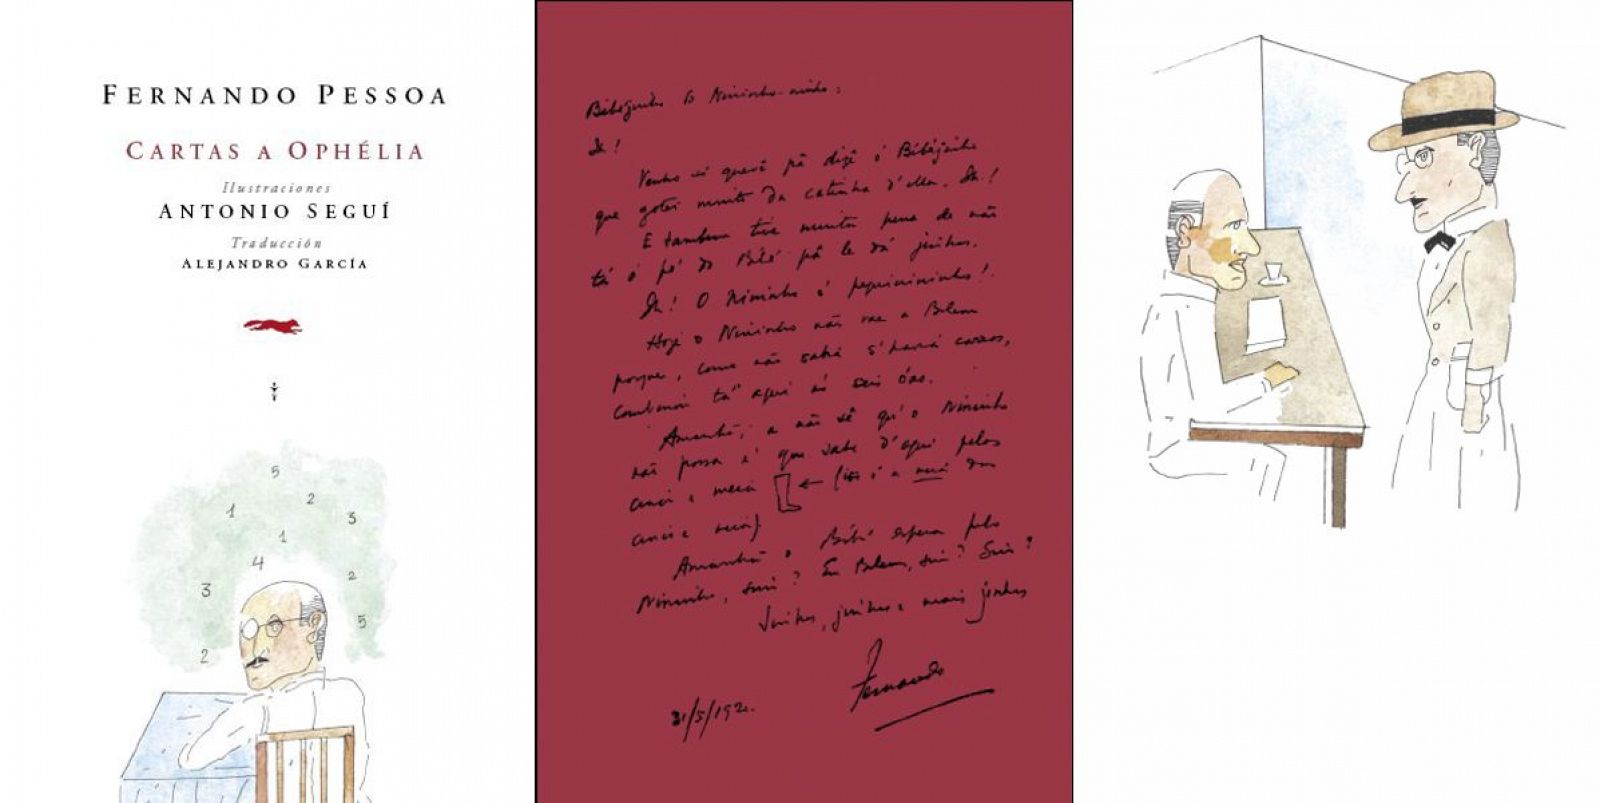 FERNANDO PESSOA
CARTAS A OPHÉLIA
Ilustraciones
ANTONIO SEGUÍ
Traducción
ALEJANDRO GARCÍA
5
1
2
3
1
4
2
3
5
2
Bebézinho do Nininho-ninho:
Oh!
Venho só quevê pâ dizê ó Bebézinho
que gotei muito da catinha d'ella. Oh!
E também tive muita pena de não
tá ó pé do Bébé pâ le dá jinhos.
Oh! O Nininho é pequinininho!
Hoje o Nininho não vae a Belem
porque, como não sabia s'havia carros,
combinei tá aqui ás seis óas.
Amanhã, a não sê qu'o Nininho
não possa é que sahe d'aqui pelas
cinco e meia ← (isto é a meia das
cinco e meia).
Amanhã o Bébé espera pelo
Nininho, sim? Em Belem, sim? Sim?
Jinhos, jinhos e mais jinhos
Fernando
31/5/1920.